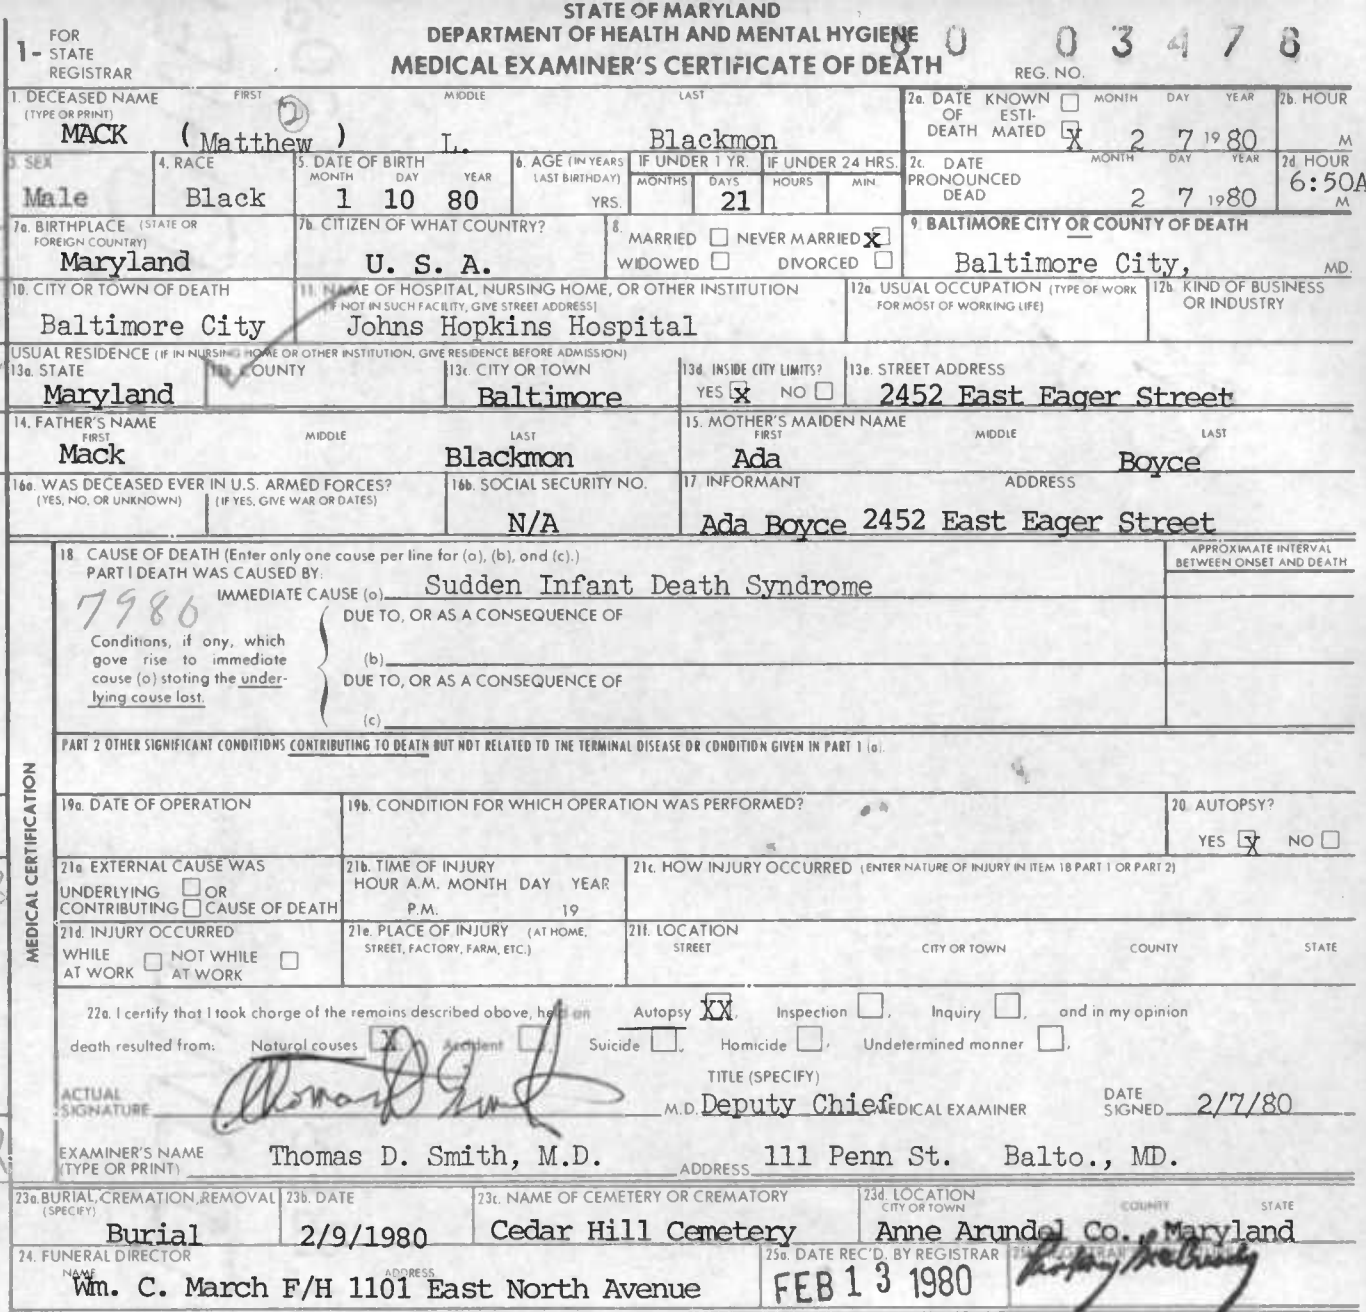 STATE OF MARYLAND
DEPARTMENT OF HEALTH AND MENTAL HYGIENE
MEDICAL EXAMINER'S CERTIFICATE OF DEATH
1- FOR STATE REGISTRAR
REG. NO. 80 03478
1. DECEASED NAME (TYPE OR PRINT) FIRST MIDDLE LAST
MACK (Matthew) 2 L. Blackmon
2a. DATE OF DEATH KNOWN ☐ ESTIMATED ☒ MONTH DAY YEAR 2 7 1980
2b. HOUR M
3. SEX Male
4. RACE Black
5. DATE OF BIRTH MONTH DAY YEAR 1 10 80
6. AGE (IN YEARS LAST BIRTHDAY) YRS.
IF UNDER 1 YR. MONTHS DAYS 21
IF UNDER 24 HRS. HOURS MIN.
2c. DATE PRONOUNCED DEAD MONTH DAY YEAR 2 7 1980
2d. HOUR 6:50A M
7a. BIRTHPLACE (STATE OR FOREIGN COUNTRY) Maryland
7b. CITIZEN OF WHAT COUNTRY? U. S. A.
8. MARRIED ☐ NEVER MARRIED ☒
WIDOWED ☐ DIVORCED ☐
9. BALTIMORE CITY OR COUNTY OF DEATH
Baltimore City, MD.
10. CITY OR TOWN OF DEATH Baltimore City
11. NAME OF HOSPITAL, NURSING HOME, OR OTHER INSTITUTION
(IF NOT IN SUCH FACILITY, GIVE STREET ADDRESS)
Johns Hopkins Hospital
12a. USUAL OCCUPATION (TYPE OF WORK FOR MOST OF WORKING LIFE)
12b. KIND OF BUSINESS OR INDUSTRY
USUAL RESIDENCE (IF IN NURSING HOME OR OTHER INSTITUTION, GIVE RESIDENCE BEFORE ADMISSION)
13a. STATE Maryland
13b. COUNTY
13c. CITY OR TOWN Baltimore
13d. INSIDE CITY LIMITS? YES ☒ NO ☐
13e. STREET ADDRESS 2452 East Eager Street
14. FATHER'S NAME FIRST MIDDLE LAST
Mack Blackmon
15. MOTHER'S MAIDEN NAME FIRST MIDDLE LAST
Ada Boyce
16a. WAS DECEASED EVER IN U.S. ARMED FORCES?
(YES, NO, OR UNKNOWN) (IF YES, GIVE WAR OR DATES)
16b. SOCIAL SECURITY NO. N/A
17 INFORMANT ADDRESS
Ada Boyce 2452 East Eager Street
MEDICAL CERTIFICATION
18. CAUSE OF DEATH (Enter only one cause per line for (a), (b), and (c).)
PART I DEATH WAS CAUSED BY:
IMMEDIATE CAUSE (a) Sudden Infant Death Syndrome
APPROXIMATE INTERVAL BETWEEN ONSET AND DEATH
7980
DUE TO, OR AS A CONSEQUENCE OF
Conditions, if any, which gave rise to immediate cause (a) stating the underlying cause last.
(b)
DUE TO, OR AS A CONSEQUENCE OF
(c)
PART 2 OTHER SIGNIFICANT CONDITIONS CONTRIBUTING TO DEATH BUT NOT RELATED TO THE TERMINAL DISEASE OR CONDITION GIVEN IN PART 1 (a).
19a. DATE OF OPERATION
19b. CONDITION FOR WHICH OPERATION WAS PERFORMED?
20. AUTOPSY? YES ☒ NO ☐
21a EXTERNAL CAUSE WAS
UNDERLYING ☐ OR
CONTRIBUTING ☐ CAUSE OF DEATH
21b. TIME OF INJURY
HOUR A.M. MONTH DAY YEAR
P.M. 19
21c. HOW INJURY OCCURRED (ENTER NATURE OF INJURY IN ITEM 18 PART 1 OR PART 2)
21d. INJURY OCCURRED
WHILE AT WORK ☐ NOT WHILE AT WORK ☐
21e. PLACE OF INJURY (AT HOME, STREET, FACTORY, FARM, ETC.)
21f. LOCATION
STREET CITY OR TOWN COUNTY STATE
22a. I certify that I took charge of the remains described above, held an Autopsy ☒, Inspection ☐, Inquiry ☐, and in my opinion
death resulted from: Natural causes ☒, Accident ☐, Suicide ☐, Homicide ☐, Undetermined manner ☐.
ACTUAL SIGNATURE Thomas D. Smith M.D.
TITLE (SPECIFY) Deputy Chief MEDICAL EXAMINER
DATE SIGNED 2/7/80
EXAMINER'S NAME (TYPE OR PRINT) Thomas D. Smith, M.D.
ADDRESS 111 Penn St. Balto., MD.
23a. BURIAL, CREMATION, REMOVAL (SPECIFY) Burial
23b. DATE 2/9/1980
23c. NAME OF CEMETERY OR CREMATORY Cedar Hill Cemetery
23d. LOCATION CITY OR TOWN COUNTY STATE
Anne Arundel Co., Maryland
24. FUNERAL DIRECTOR
NAME ADDRESS
Wm. C. March F/H 1101 East North Avenue
25a. DATE REC'D. BY REGISTRAR FEB 13 1980